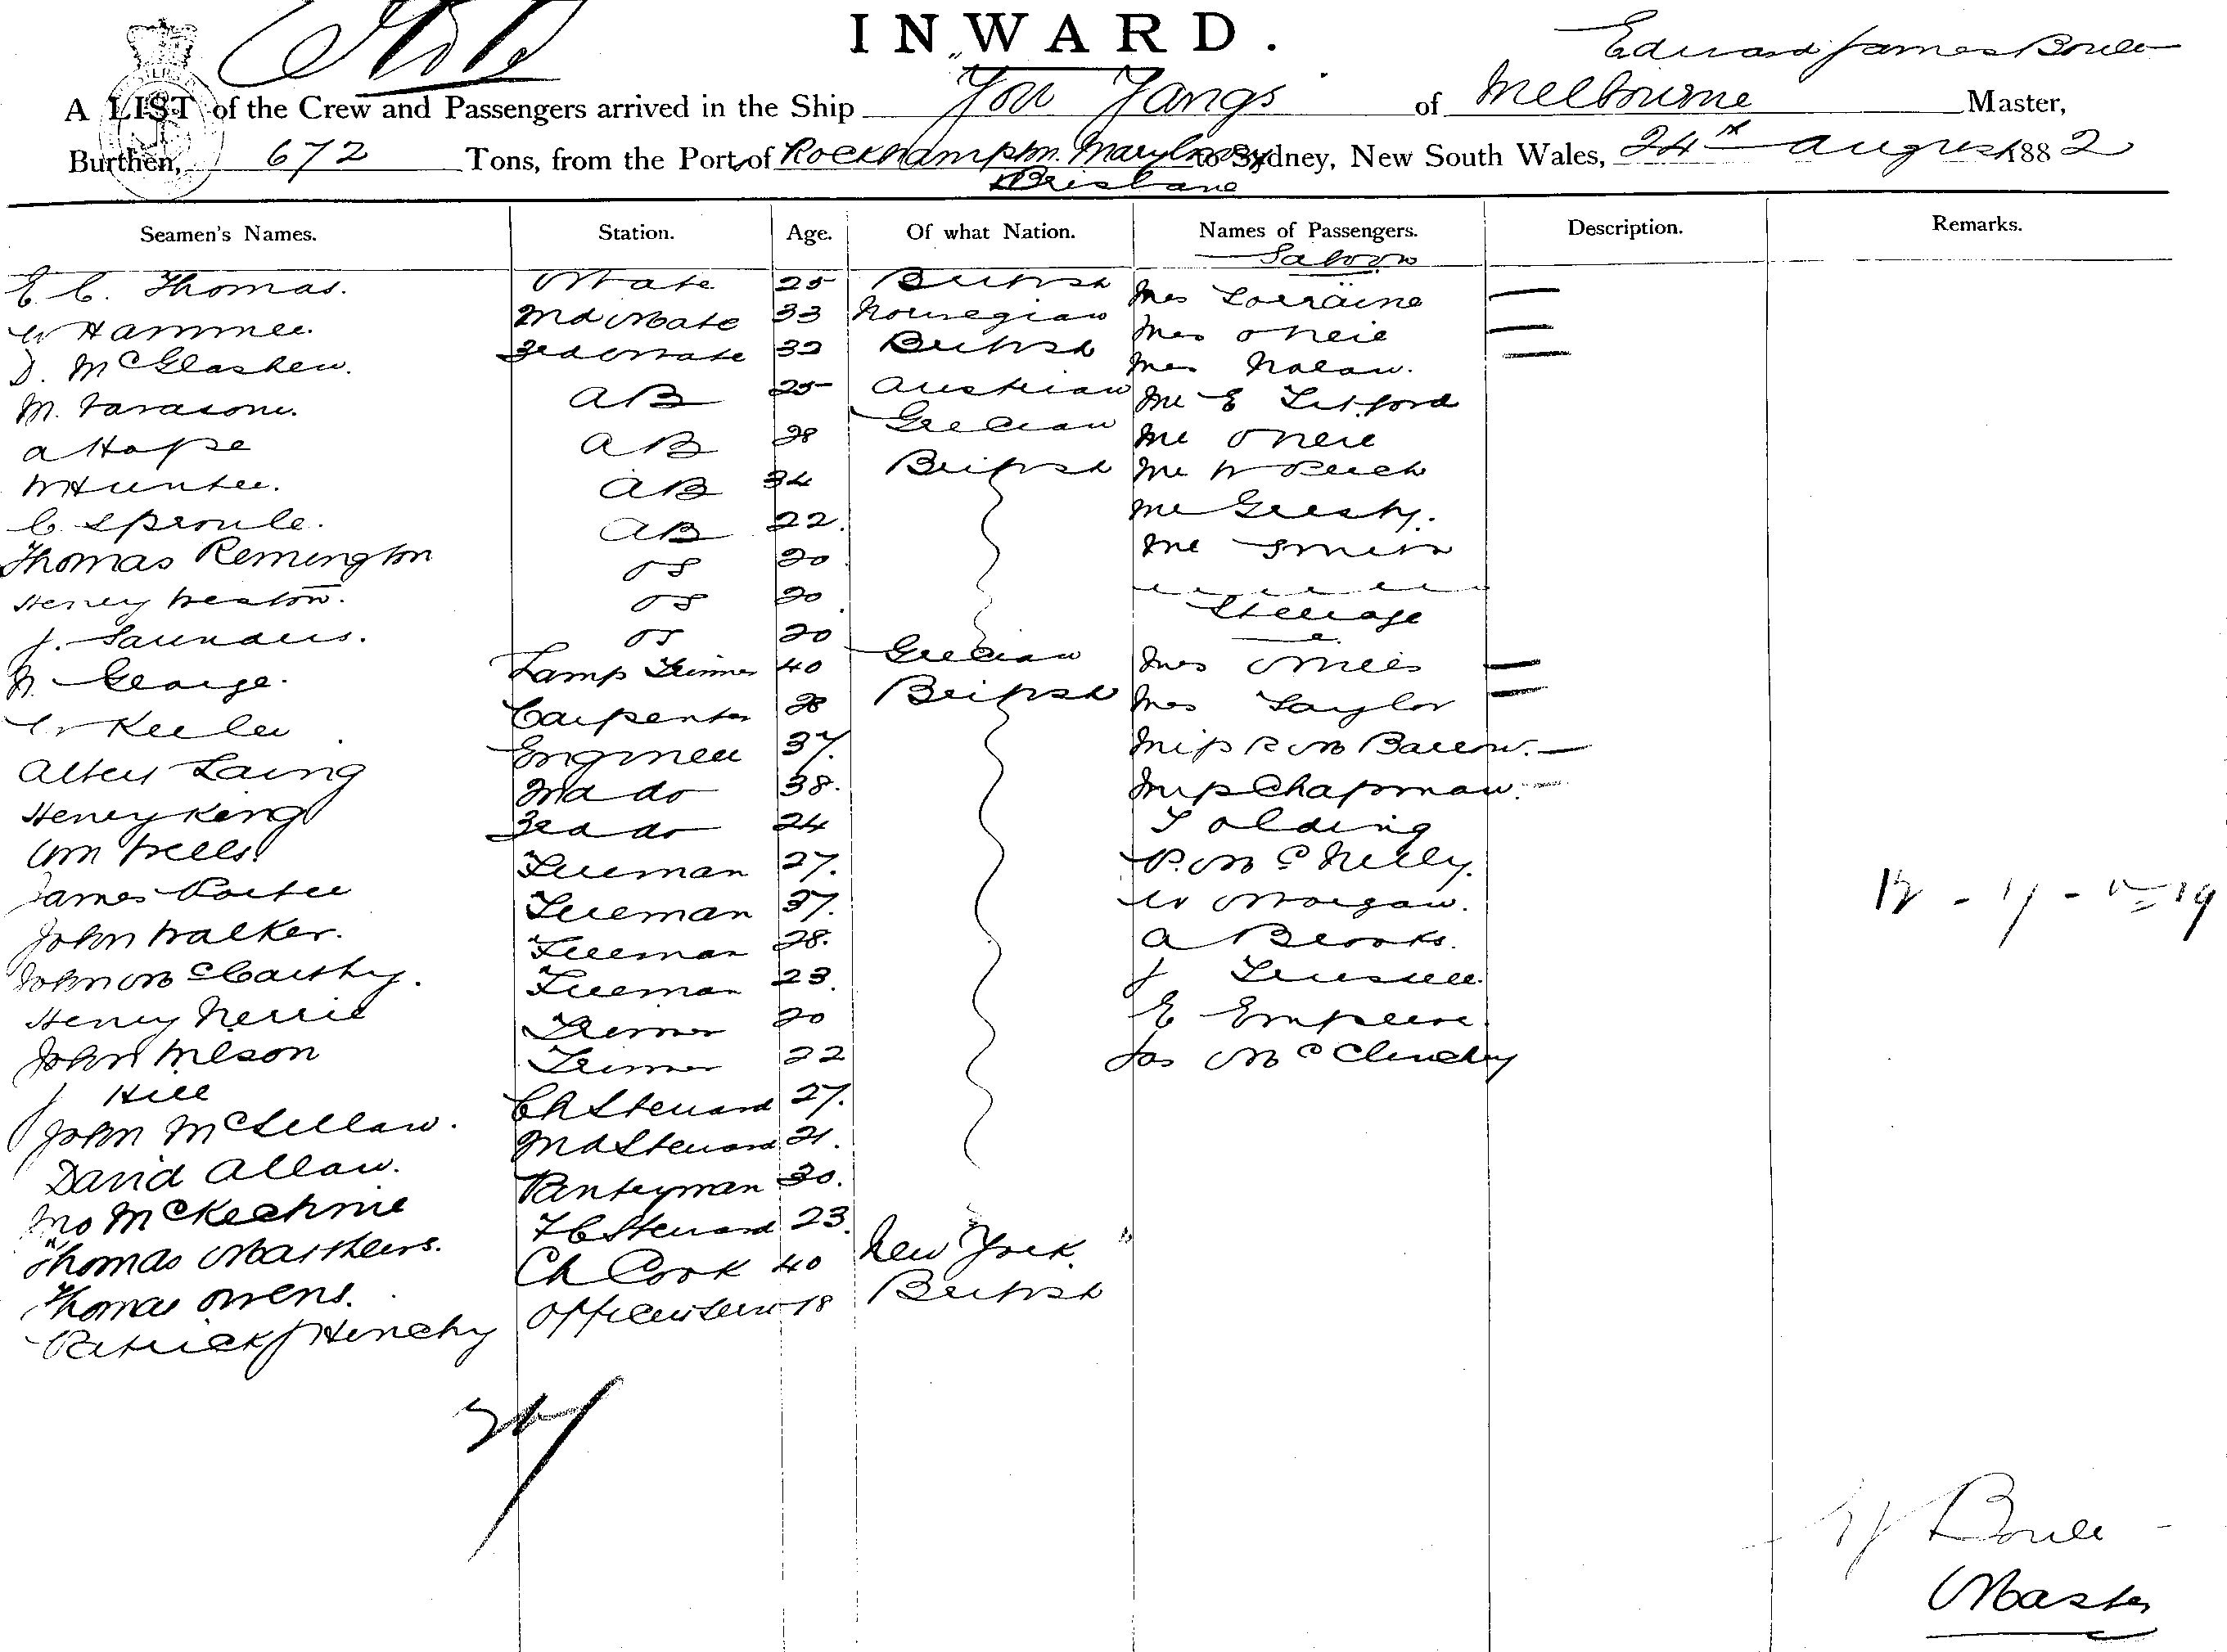 INWARD.
Edward James Boult
A LIST of the Crew and Passengers arrived in the Ship You Yangs of Melbourne Master,
Burthen, 672 Tons, from the Port of Rockhampton. Maryboro to Sydney, New South Wales, 24th August 1882
& Brisbane
Seamen's Names. Station. Age. Of what Nation. Names of Passengers. Description. Remarks.
Saloon
E C. Thomas. Mate 25 British Mrs Lorraine —
W Hammer. 2nd Mate 33 Norwegian Mrs O Neil —
D. McGlashen. 3rd Mate 32 British Mrs Nolan. —
M. AB 25 Austrian Mr E Titford
A Hope AB 28 Grecian Mr O Neil
W Hunter. AB 34 British Mr W
C. Sproule. AB 22. Mr
Thomas Remington OS 20 Mr Smith
Henry Weston. OS 20
J. Saunders. OS 20 Steerage
N. George. Lamp Trimmer 40 Grecian Mrs —
W Keeler Carpenter 28 British Mrs Taylor —
Albert Laing Engineer 37. Miss R M Barron. —
Henry King 2nd do 38. Miss Chapman. —
Wm Wells. 3rd do 24 Olding
James Porter Fireman 27. P. McNelly.
John Walker. Fireman 37. W Morgan.
John McCarthy. Fireman 28. A Brooks.
Henry Fireman 23. J
John Wilson Trimmer 20 E
J Hill Trimmer 22 Jas McClenchy
John McLellan. Ch Steward 27.
David Allan. 2nd Steward 21.
Jno McKechnie Pantryman 30.
Thomas Matthews. F C Steward 23.
Thomas Owens. Ch Cook 40 New York.
Patrick J Henchy Officers Serv 18 British
E J Boult
Master